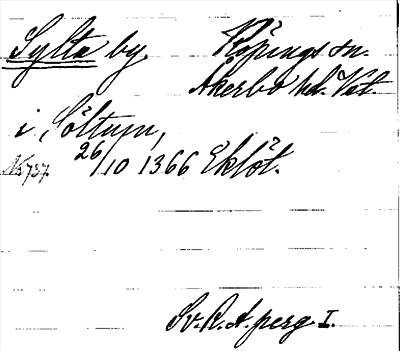 Sylta by. Köpings sn.
Åkerbo hd. Vstl
i Söltum,
No 737. 26/10 1366 Eklöt.
Sv. R. A. perg I.